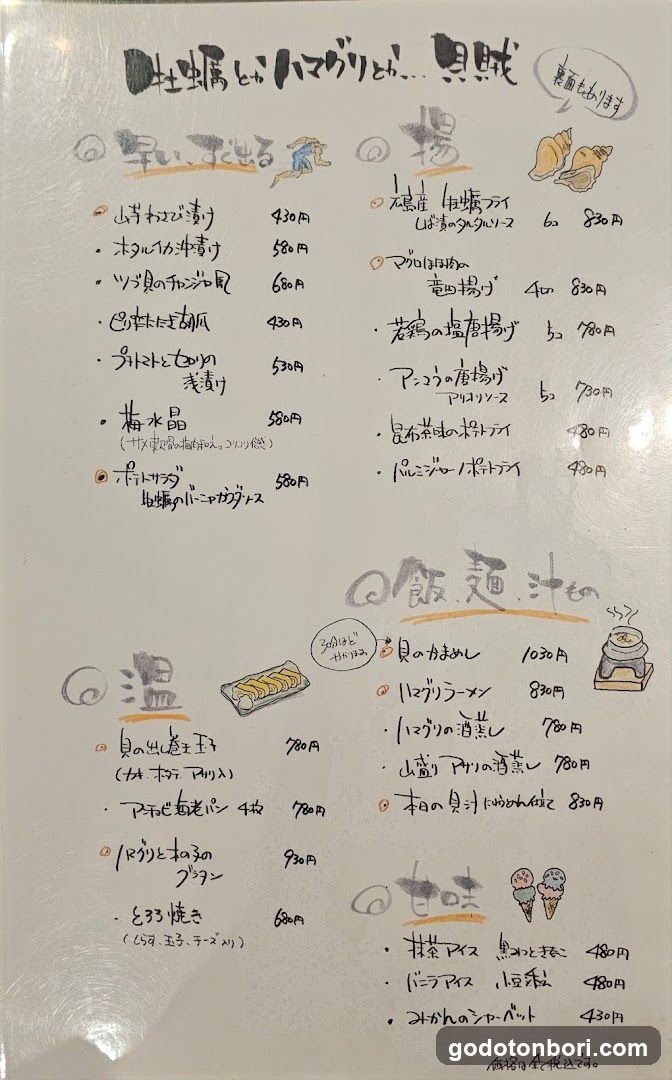 牡蠣とかハマグリとか… 貝賊
裏面もあります
早い、すぐ出る
山芋わさび漬け 430円
ホタルイカ沖漬け 580円
ツブ貝のチャンジャ風 680円
ピリ辛たたき胡瓜 430円
プチトマトとセロリの
浅漬け 530円
梅水晶 580円
(サメ軟骨の梅肉和え。コリコリ食感)
ポテトサラダ 580円
牡蠣のバーニャカウダソース
温
貝の出し巻玉子 780円
(カキ、ホタテ、アサリ入)
アンチョビ海老パン 4枚 780円
ハマグリと木の子の 930円
グラタン
とろろ焼き 680円
(しらす、玉子、チーズ入り)
揚
広島産 牡蠣フライ
しば漬のタルタルソース 6コ 830円
マグロほほ肉の
竜田揚げ 4つ 830円
若鶏の塩唐揚げ 5コ 780円
アンコウの唐揚げ
アリオリソース 5コ 730円
昆布茶味のポテトフライ 480円
パルミジャーノポテトフライ 480円
飯、麺、汁もの
30分ほど
かかります
貝のかまめし 1030円
ハマグリラーメン 830円
ハマグリの酒蒸し 780円
山盛りアサリの酒蒸し 780円
本日の貝汁にゅうめん仕立て 830円
甘味
抹茶アイス 黒みつときなこ 480円
バニラアイス 小豆 480円
みかんのシャーベット 430円
価格は全て税込です。
godotonbori.com